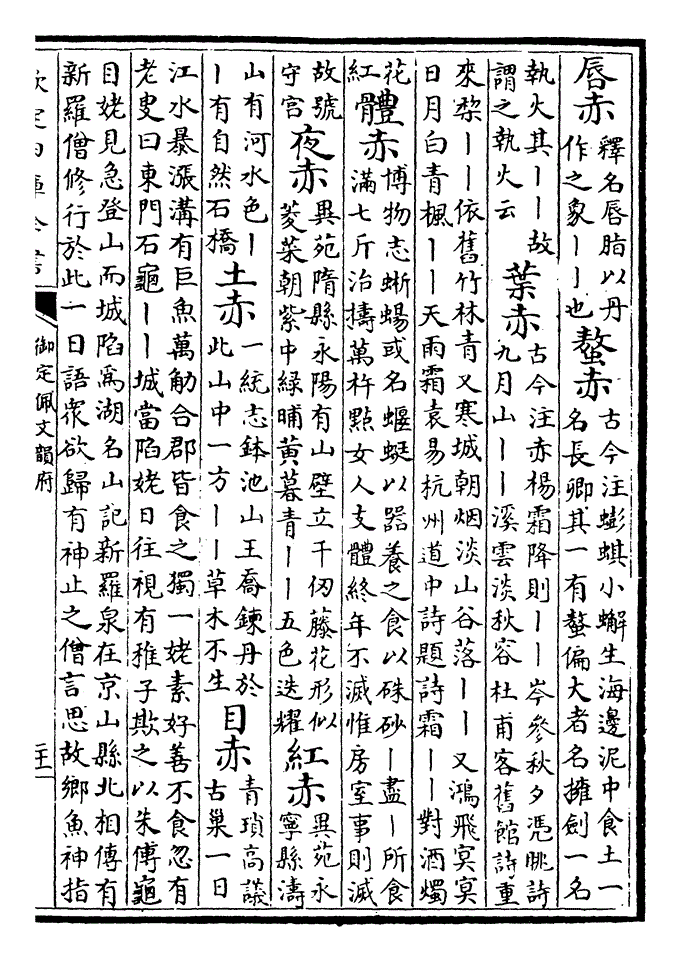 唇赤釋名唇脂以丹作之象丨丨也螯赤古今注蟛蜞小蠏生海邊泥中食土一名長卿其一有螯偏大者名擁劍一名
執火其丨丨故謂之執火云葉赤古今注赤楊霜降則丨丨岑參秋夕凴眺詩九月山丨丨溪雲淡秋容杜甫客舊館詩重
來棃丨丨依舊竹林青又寒城朝烟淡山谷落丨丨又鴻飛冥冥日月白青楓丨丨天雨霜袁易杭州道中詩題詩霜丨丨對酒燭
花紅體赤博物志蜥蜴或名蝘蜓以器養之食以硃砂丨盡丨所食滿七斤治擣萬杵㸃女人支體終年不滅惟房室事則滅
故號守宮夜赤異苑隋縣永陽有山壁立千仞藤花形似菱菜朝紫中綠晡黄暮青丨丨五色迭耀紅赤異苑永寧縣濤
山有河水色丨丨有自然石橋土赤一統志鉢池山王喬鍊丹於此山中一方丨丨草木不生目赤青瑣高議古巢一日
江水暴漲溝有巨魚萬觔合郡皆食之獨一姥素好善不食忽有老叟曰東門石龜丨丨城當陷姥日往視有稚子欺之以朱傅龜
目姥見急登山而城陷為湖名山記新羅泉在京山縣北相傳有新羅僧修行於此一日語衆欲歸有神止之僧言思故鄉魚神指
欽定四庫全書
御定佩文韻府